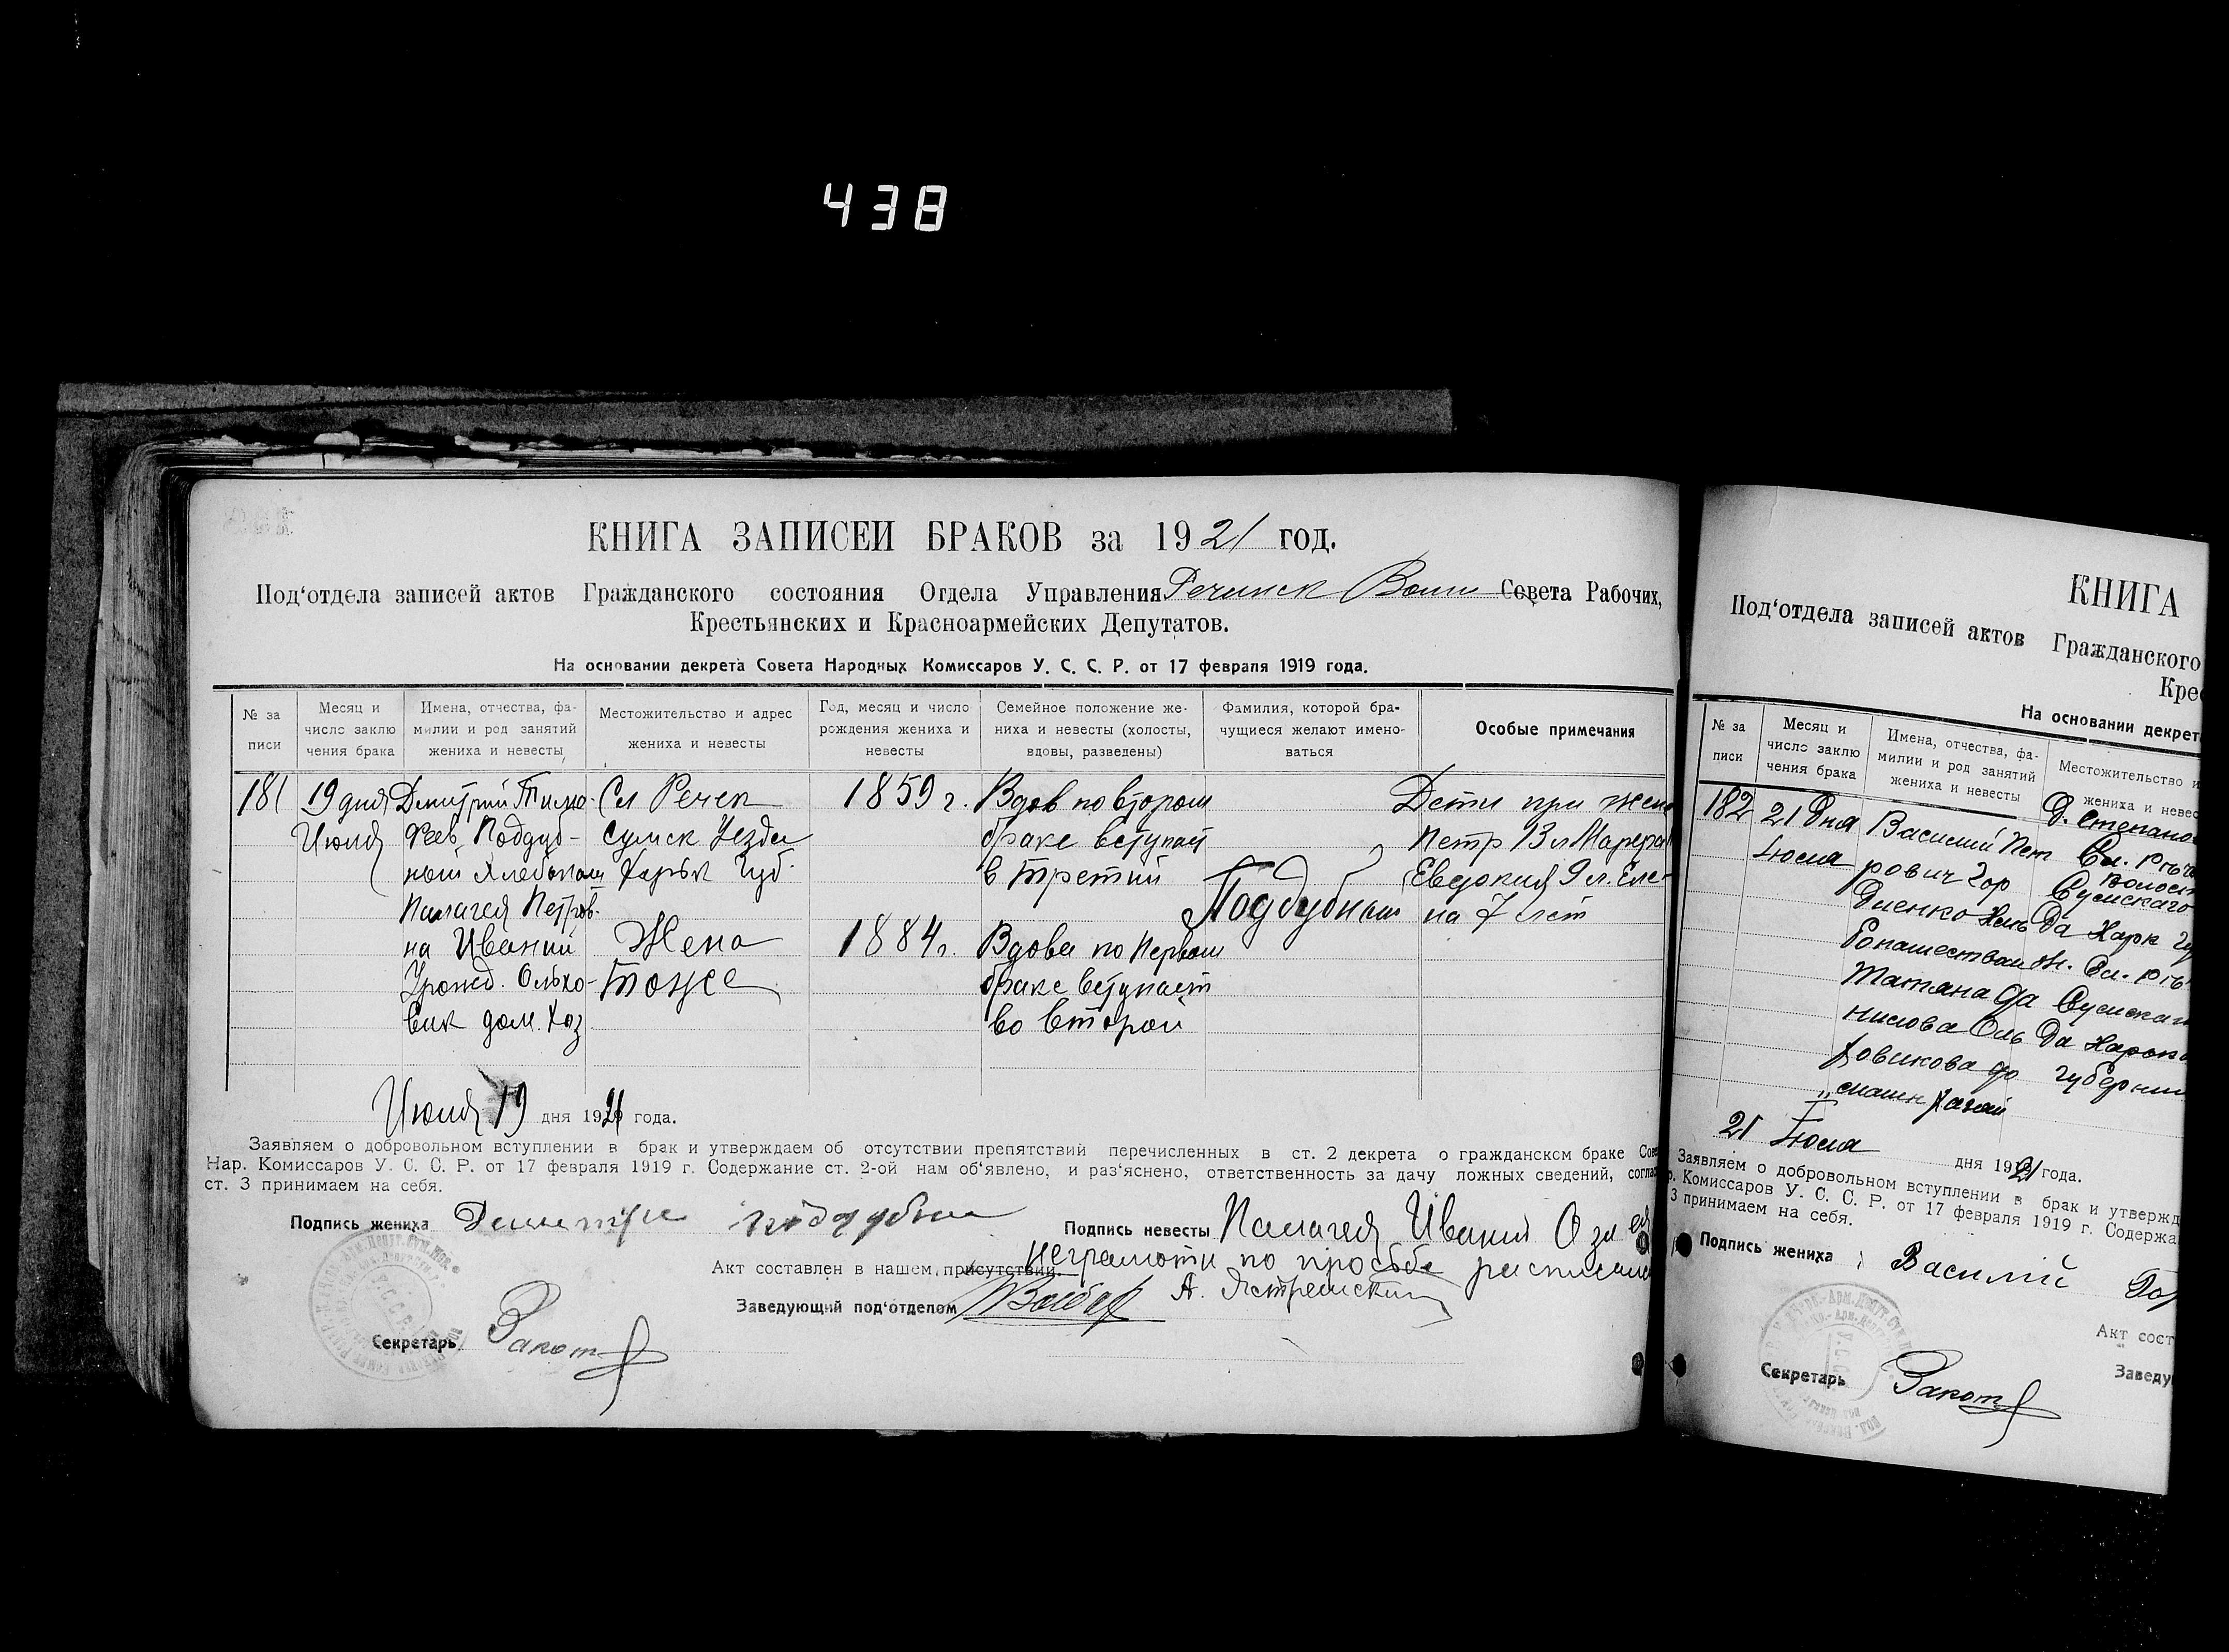 438
КНИГА ЗАПИСЕЙ БРАКОВ за 1921 год.
Под‘отдела записей актов Гражданского состояния Отдела Управления Речинск Совета Рабочих,
Крестьянских и Красноармейских Депутатов.
На основании декрета Совета Народных Комиссаров У. С. С. Р. от 17 февраля 1919 года.
№ за
писи
Месяц и
число заклю
чения брака
Имена, отчества, фа-
милии и род занятий
жениха и невесты
Местожительство и адрес
жениха и невесты
Год, месяц и число
рождения жениха и
невесты
Семейное положение же-
ниха и невесты (холосты,
вдовы, разведены)
Фамилия, которой бра-
чущиеся желают имено-
ваться
Особые примечания
181
19 дня
Июля
Дмитрий Тимо-
феев Поддуб-
ный Хлебопаш
Палагея Петров-
на Иваний
Урожд. Ольхо-
вик дом. Хоз
Сл Речек
Сумск Уезда
Харьк Губ.
Жена
тоже
1859 г.
1884 г.
Вдов по втором
браке вступает
в третий
Вдова по первом
браке вступает
во второй
Поддубным
Дети при жене
Петр 13 л
Евдокия 9 л. Еле-
на 7 лет
Июля 19 дня 1921 года.
Заявляем о добровольном вступлении в брак и утверждаем об отсутствии препятствий перечисленных в ст. 2 декрета о гражданском браке Сове
Нар. Комиссаров У. С. С. Р. от 17 февраля 1919 г. Содержание ст. 2-ой нам об‘явлено, и раз‘яснено, ответственность за дачу ложных сведений, соглас
ст. 3 принимаем на себя.
Подпись жениха Дмитри поддубни
Подпись невесты Палагея Иваний О за ея
неграмотн по просьбе расписался
Акт составлен в нашем присутствии.
А. Ястремский
Заведующий под‘отделом
Секретарь
КНИГА
Под‘отдела записей актов Гражданского
Крес
На основании декрета
№ за
писи
Месяц и
число заклю
чения брака
Имена, отчества, фа-
милии и род занятий
жениха и невесты
Местожительство и
жениха и невес
182
21 Дня
Июля
Василий Пет
рович Гор
диенко
Татяна Да
нилова Оль
ховикова до
машн хазяй
Д. Степано
волост
Сумскаго
Да Харк
Сумскаго
Да Харьк
губернии
21 Июля дня 1921 года.
Заявляем о добровольном вступлении в брак и утвержд
р. Комиссаров У. С. С. Р. от 17 февраля 1919 г. Содержа
3 принимаем на себя.
Подпись жениха Василий Гор
Акт сост
Заведу
Секретарь